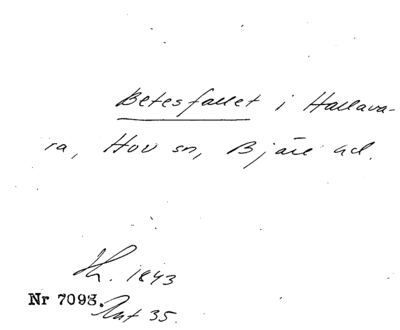 Betesfallet i Hallava-
ra, Hov sn, Bjäre hd.
1843
Nr 7098.
Ant 35.